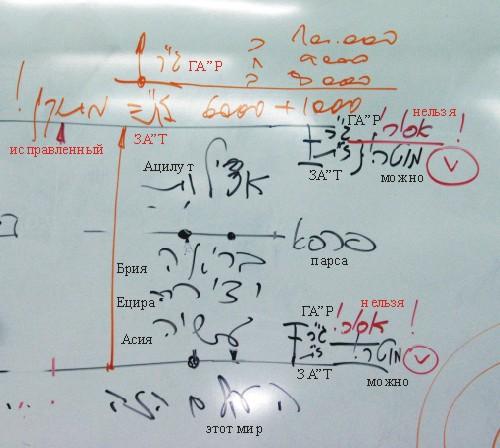 ג"ר ГА"Р י 10.000
ח 9000
ז 8000
! מתוקן ז"ת = 6000 + 1000
исправленный ЗА"Т
ГА"Р ג"ר אסור! нельзя
ЗА"Т ז"ת מותר! можно V
Ацилут אצילות
פרסא
парса
Брия בריאה
Ецира יצירה
Асия עשיה
ГА"Р ג"ר אסור! нельзя
ЗА"Т ז"ת מותר! можно V
העולם הזה
этот мир